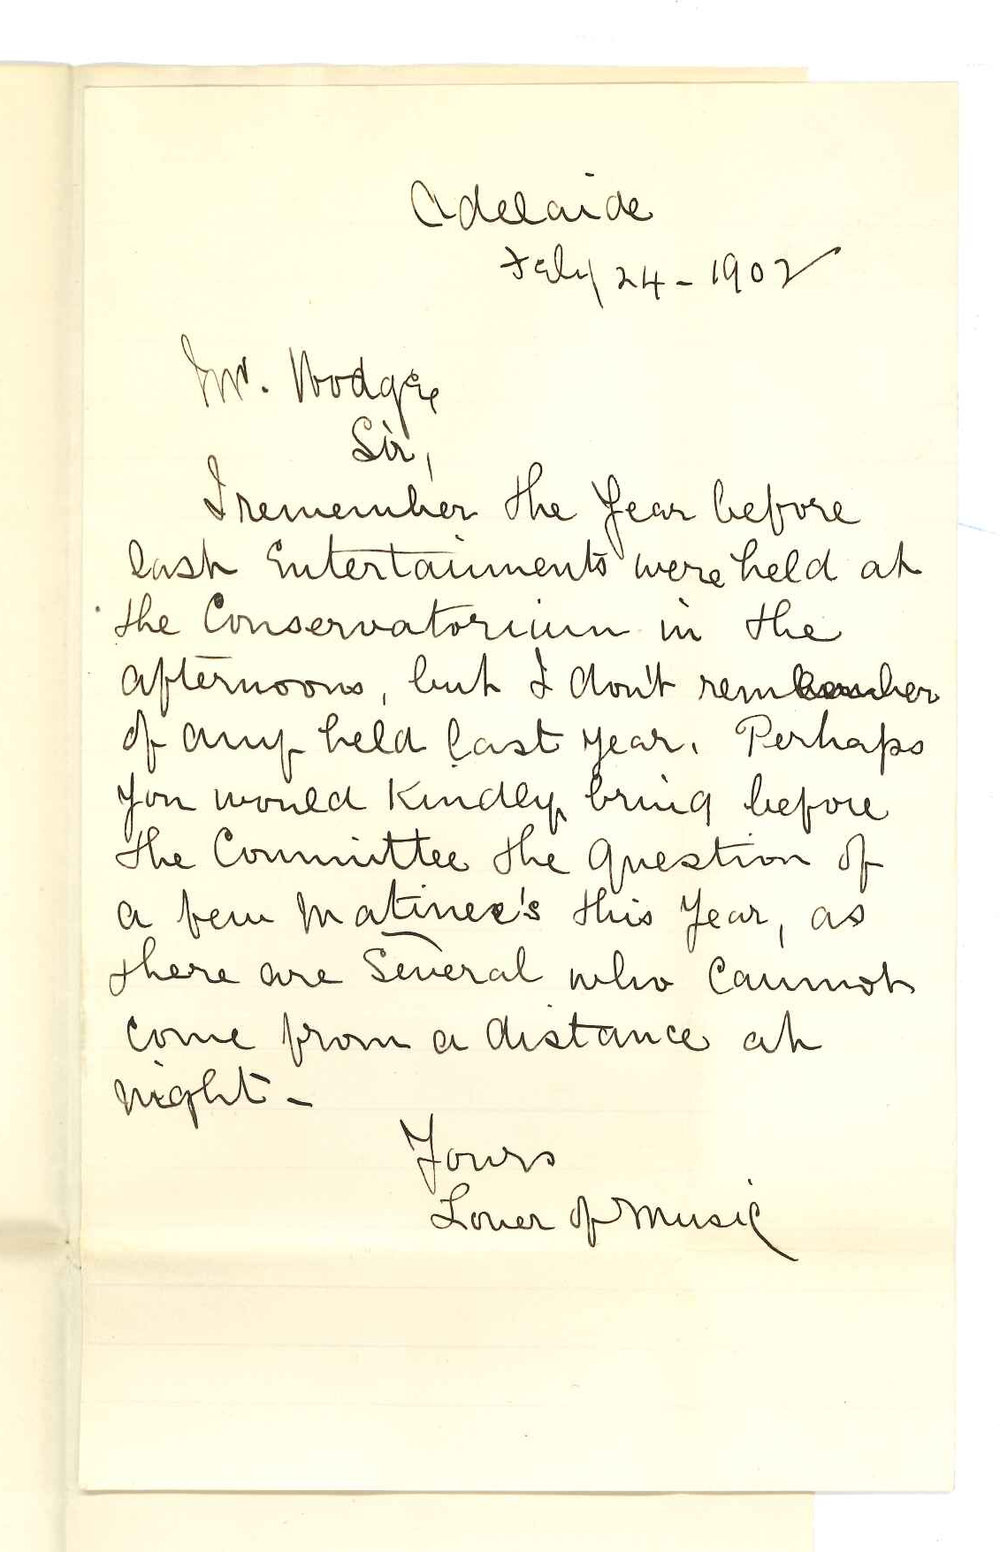 Adelaide
Feby 24 - 1902
Mr. Hodge
Sir,
I remember the Year before
last Entertainments were held at
the Conservatorium in the
afternoons, but I don't remember
of any held last year. Perhaps
you would kindly bring before
the Committee the question of
a few Matinee's this Year, as
there are Several who Cannot
come from a distance at
night -
Yours
Lover of Music